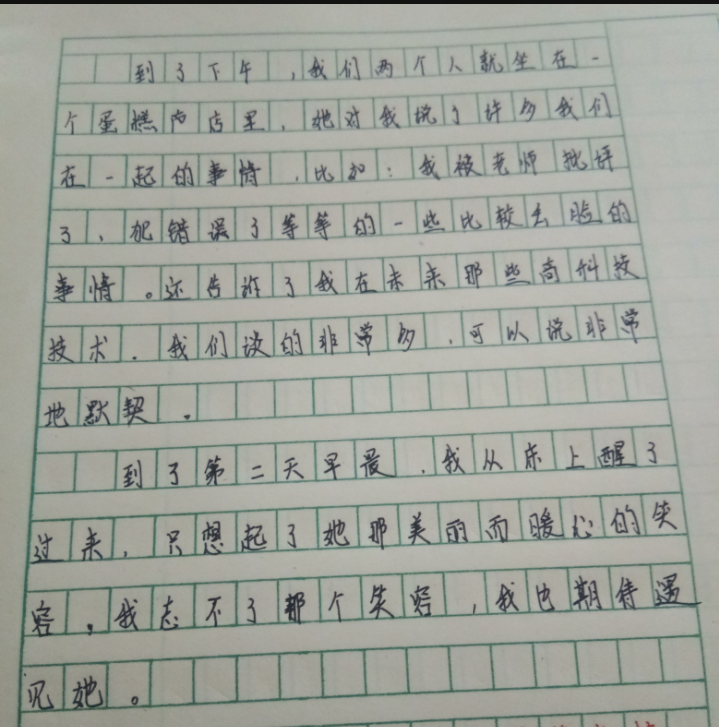 到了下午，我们两个人就坐在一
个蛋糕店里，她对我说了许多我们
在一起的事情，比如：我被老师批评
了、犯错误了等等的一些比较丢脸的
事情。还告诉了我在未来那些高科技
技术，我们谈的非常多，可以说非常
地默契。
到了第二天早晨，我从床上醒了
过来，只想起了她那美丽而暖心的笑
容，我忘不了那个笑容，我也期待遇
见她。